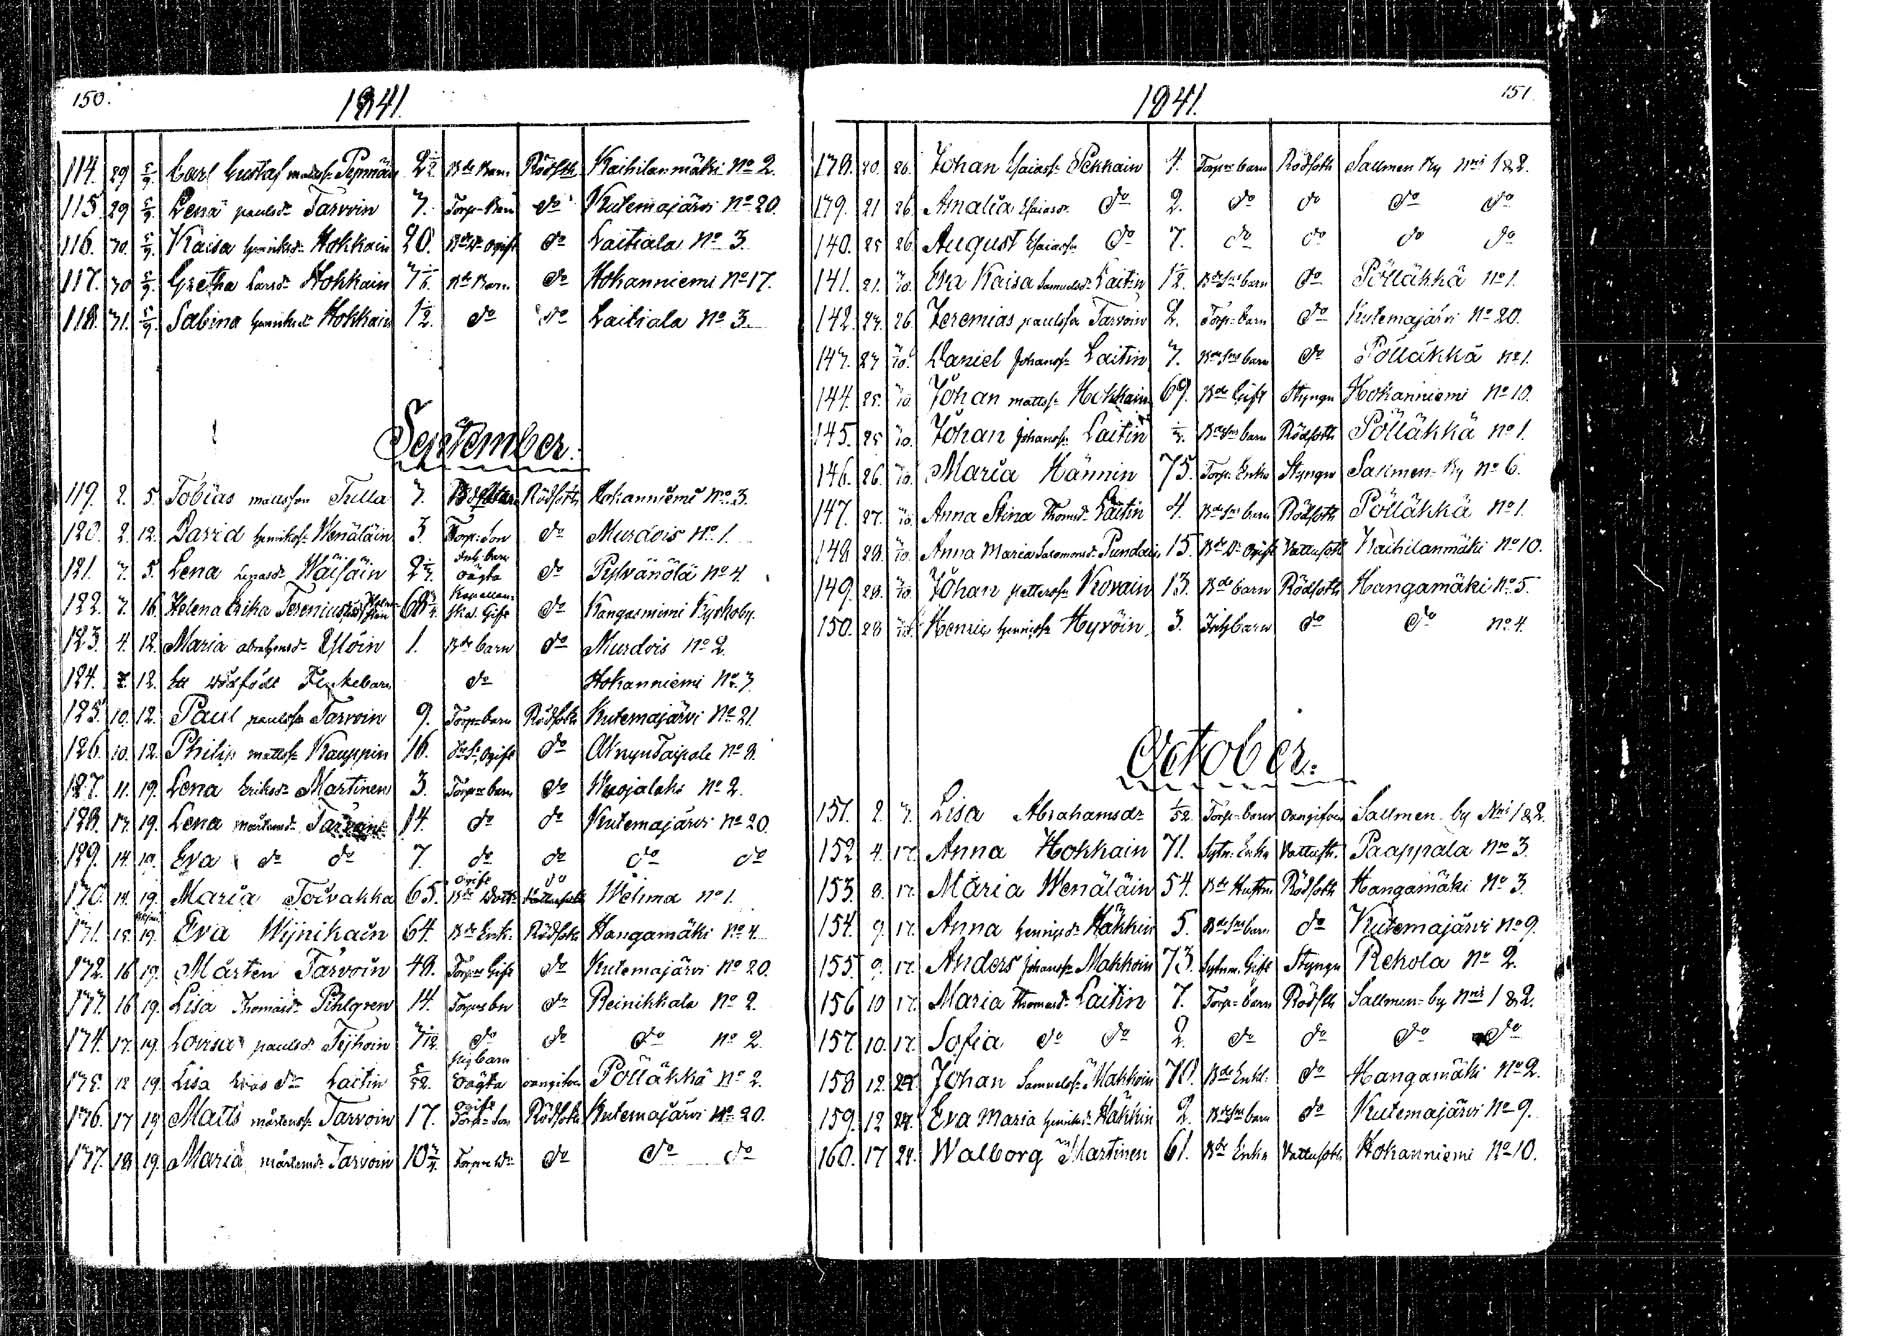 150.
1841.
114. 29 5/9. Carl Gustaf matts: 2 1/2 Bde Barn Rödsoth Kaihilanmäki No 2.
115. 29 5/9. Lena paulsdr Tarvoin 7. Torp-Barn do Kutemajärvi No 20.
116. 30. 5/9. Kaisa henriksdr Hokkain 20. ogift do Laitiala No 3.
117. 30 5/9. Gretha larsdr Hokkain Bde Barn do Hokanniemi No 17.
118. 31. 5/9. Sabina henriksdr Hokkain 1/2. do do Laitiala No 3.
September.
119. 2. 5. Tobias mattsson Tulla 7. Rödsoth Hokanniemi No 3.
120. 2. 12. David henriks: Wenäläin 3. Torp: Son do Murdois No 1.
121. 3. 5. Lena Wäisäin Inh: barn oägta do Pylvänölä No 4.
122. 3. 16. Helena Erika Terenius Kapellans Gift do Kangasniemi Kyrkoby.
123. 4. 12. Maria abrahamsdr Ylöin 1. Bde barn do Murdois No 2.
124. 7. 12. Ett dödfödt Flickebarn do Hokanniemi No 3
125. 10. 12. Paul paulss: Tarvoin 9. Torp=barn Rödsoth Kutemajärvi No 21.
126. 10. 12. Philip mattss: Kauppin 16. Ogift do Taipale No 8.
127. 11. 19. Lena Eriksdr Martinen 3. Torp=barn do Wuojalaks No 2.
128. 13. 19. Lena mårtensdr Tarvoin 14. do do Kutemajärvi No 20.
129. 14 19. Eva do do 7. do do do do
130. 14. 19. Maria Toivakka 65. Ogift Wehma No 1.
131. 15. 19. Eva Wijnikain 64. Bde Enk: Rödsoth Hangamäki No 4
132. 16 19. Mårten Tarvoin 48. Torpar Gift do Kutemajärvi No 20.
133. 16 19. Lisa Thomasdr Pihlgren 14. do Reinikkala No 2.
134. 17. 19. Lovisa paulsdr Tyhoin do do do No 2.
135. 12 19. Lisa Evas dr Laitin 5/52. barn oägta oangifven Pölläkkä No 2.
136. 17 19 Matts mårtenss: Tarvoin 17. ogift Torp: Son Rödsoth Kutemajärvi No 20.
137. 18. 19. Maria mårtensdr Tarvoin do do do
1841.
151
138. 20. 26. Johan Esaiass: Pekkain 4. Torp=barn Rödsoth Sallmen By Nris 1 & 2.
139. 21 26. Amalia Esaiasdr do 2. do do do do
140. 25 26 August Esaiass: do 7. do do do do
141. 21. 3/10. Eva Kaisa Samuelsdr Laitin 1/2. barn do Pölläkkä No 1.
142. 23. 26. Jeremias paulsson Tarvoin 2. Torp=barn do Kutemajärvi No 20.
143. 23 3/10. Daniel Johanss: Laitin 7. barn do Pölläkkä No 1.
144. 25. 3/10. Johan mattss: Hokkain 69. Bde Gift Styngn Hokanniemi No 10.
145. 25 3/10. Johan Johanss: Laitin barn Rödsoth Pölläkkä No 1.
146. 26. 3/10. Maria Hännin 75. Torp: Enka Styngn Sallmen=By No 6.
147. 27. 3/10. Anna Stina Thomsdr Laitin 4. barn Rödsoth Pölläkkä No 1.
148 28. 3/10. Anna Maria Salomonsdr 15. Ogift Vattusoth Kaihilanmäki No 10.
149. 28. 3/10. Johan petterss: Kovain 13. Bde barn Rödsoth Hangamäki No 5.
150. 28 3/10. Henric henricss: Hyvöin. 3. Inh: barn do do No 4.
October.
151. 2. 3. Lisa Abrahamsdr 1/52. Torp=barn oangifven Sallmen by Nris 1 & 2.
152 4. 17. Anna Hokkain 71. Enka Vattust. Paappala No 3.
153. 8. 17. Maria Wenäläin 54. Bde Hustru Rödsoth Hangamäki No 3.
154. 9. 17. Anna henricsdr Häkkin 5. barn do Kutemajärvi No 9.
155. 9. 17. Anders Johanss: Makkoin 73. Gift Styngn Rekola No 2.
156 10 17. Maria Thomasdr Laitin 7. Torp=barn Rödsoth Sallmen=by Nris 1 & 2.
157 10. 17. Sofia do do 2. do do do do
158 12. 24. Johan Samuelss: Makkoin 70. Bde Enkl: do Hangamäki No 2.
159. 12 24. Eva Maria henriksdr Häkkin 2. barn do Kutemajärvi No 9.
160. 17 24. Walborg Martinen 61. Bde Enka Vattusoth Hokanniemi No 10.